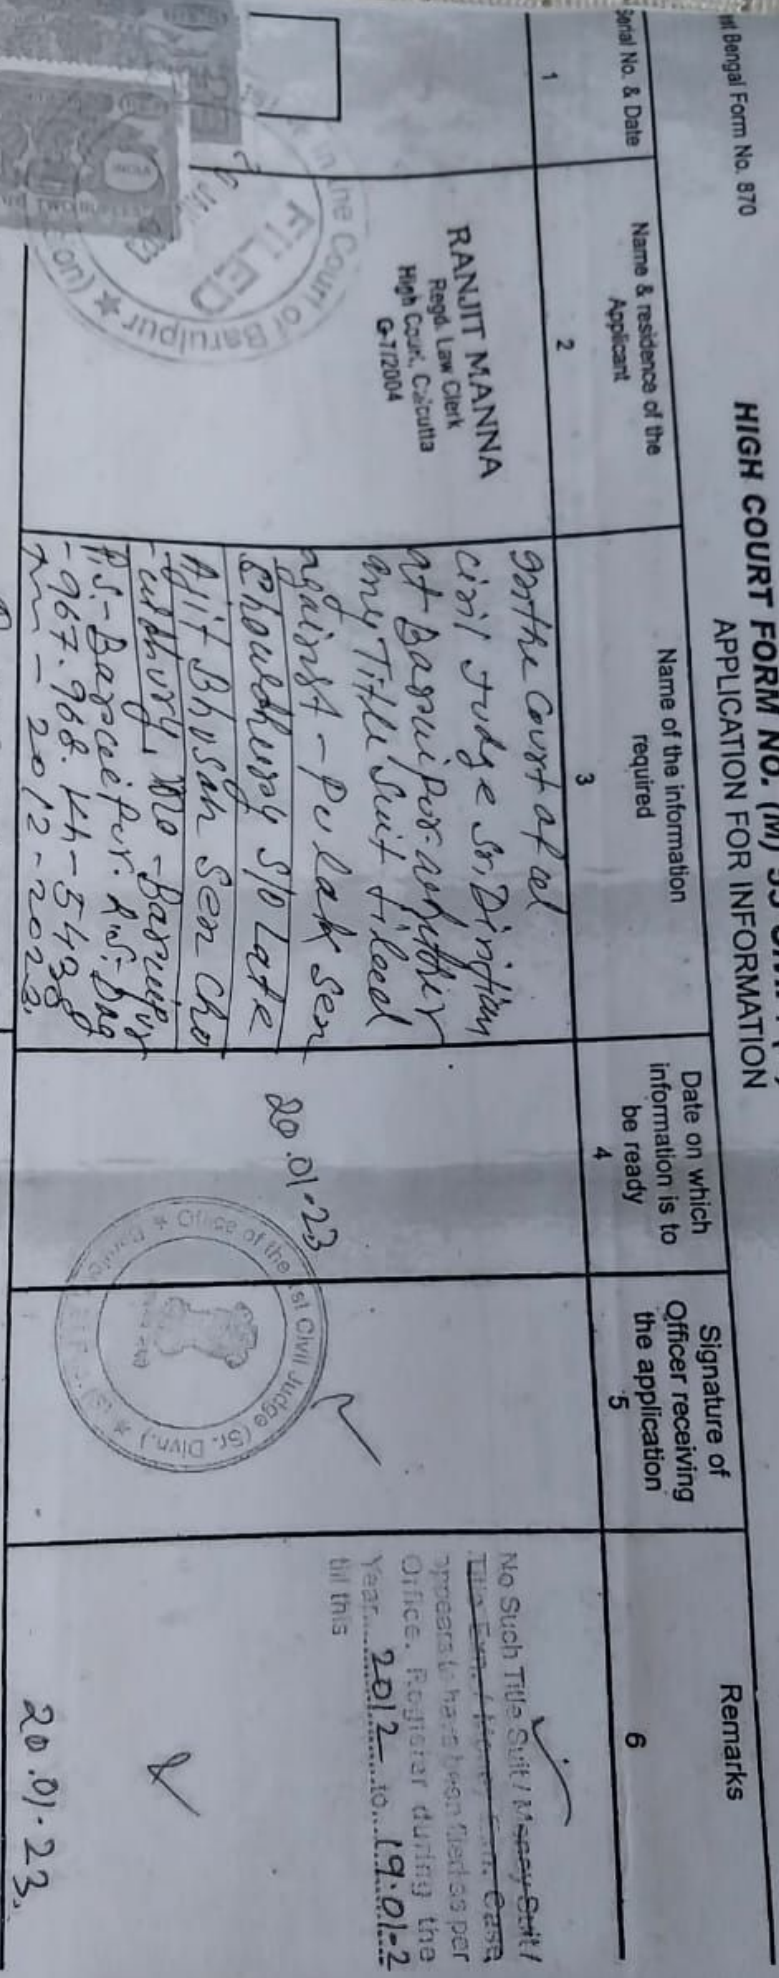 st Bengal Form No. 870
HIGH COURT FORM NO. (M)
APPLICATION FOR INFORMATION
Serial No. & Date
Name & residence of the
Applicant
Name of the information
required
Date on which
information is to
be ready
Signature of
Officer receiving
the application
Remarks
1
2
3
4
5
6
RANJIT MANNA
Regd. Law Clerk
High Court, Calcutta
G-7/2004
in the Court of Baruipur
FILED
In the Court of
Civil Judge Sr. Divition
at Baruipur. whether
any Title Suit filed
against - Pulak Sen
Chowdhury S/O Late
Ajit Bhusan Sen Cho
-udhury,
P.S.- Baruipur. R.S. Dag
-967.968. Kh-543
2012-2023
20.01-23
Office of the 1st Civil Judge (Sr. Divn.)
No Such Title Suit / Money Suit /
Title Exn. / Money Exn. Case
appears to have been filed as per
Office. Register during the
Year....2012....to...19.01-2
till this
20.01-23.